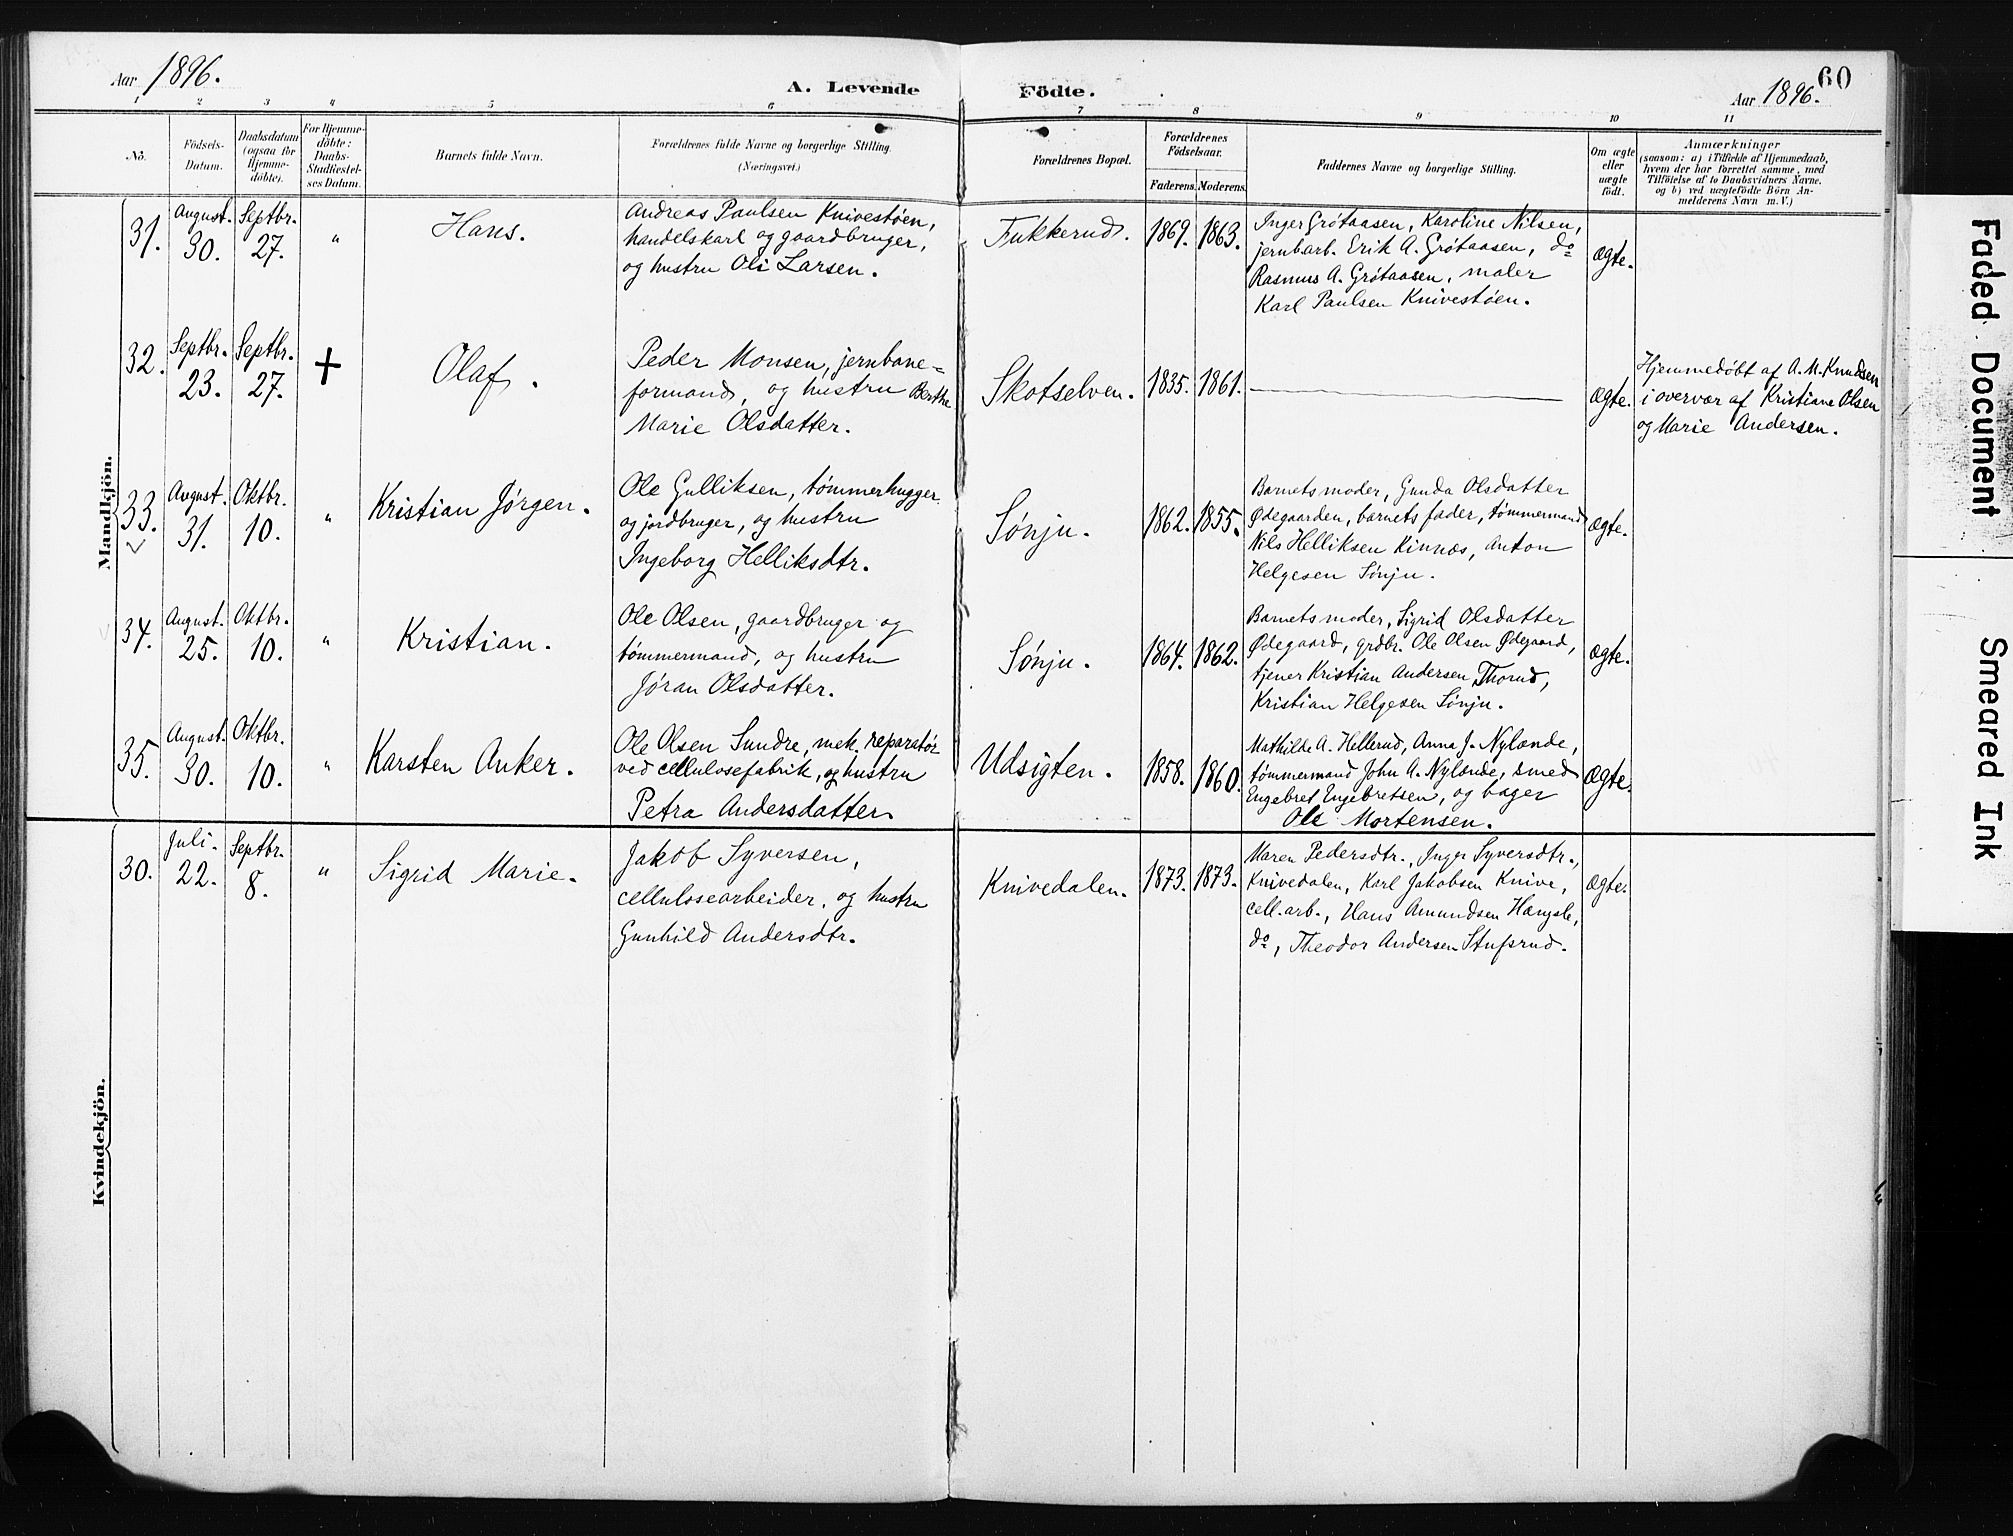 Aar 1896.
A. Levende Födte.
Aar 1896.
60
1 2 3 4 5 6 7 8 9 10 11
No.
Födsels-
Datum.
Daabsdatum
(ogsaa for
Hjemme-
döbte).
For Hjemme-
döbte:
Daabs-
Stadfæstel-
ses Datum.
Barnets fulde Navn.
Forældrenes fulde Navne og borgerlige Stilling.
(Næringsvei.)
Forældrenes Bopæl.
Forældrenes
Födselsaar.
Faderens. Moderens.
Faddernes Navne og borgerlige Stilling.
Om ægte
eller
uægte
födt.
Anmærkninger
(saasom: a) i Tilfælde af Hjemmedaab,
hvem der har forrettet samme, med
Tilföielse af to Daabsvidners Navne,
og b) ved uægtefödte Börn An-
melderens Navn m. V.)
Mandkjön.
31.
August.
30.
Septbr.
27.
"
Hans.
Andreas Paulsen Knivestøen,
handelskarl og gaardbruger,
og hustru Oli Larsen.
Fukkerud.
1869. 1863.
Inger Grøtaasen, Karoline Nilsen,
jernbarb. Erik A. Grøtaasen, do
Rasmus A. Grøtaasen, maler
Karl Paulsen Knivestøen.
Ægte.
32.
Septbr.
23.
Septbr.
27.
+
Olaf.
Peder Monsen, jernbane=
formand, og hustru Berthe
Marie Olsdatter.
Skotselven.
1835. 1861.
Ægte.
Hjemmedøbt af A. M. Knudsen
i overvær af Kristiane Olsen
og Marie Andersen.
33.
August.
31.
Oktbr.
10.
"
Kristian Jørgen.
Ole Gulliksen, tømmerhugger
og jordbruger, og hustru
Ingeborg Helliksdtr.
Sønju.
1862. 1855.
Barnets moder, Gunda Olsdatter
Ødegaarden, barnets fader, tømmermand
Nils Helliksen Kinnæs, Anton
Helgesen Sønju.
Ægte.
34.
August.
25.
Oktbr.
10.
"
Kristian.
Ole Olsen, gaardbruger og
tømmermand, og hustru
Jøran Olsdatter.
Sønju.
1864. 1862.
Barnets moder, Sigrid Olsdatter
Ødegaard, grdbr. Ole Olsen Ødegaard,
tjener Kristian Andersen Thorud,
Kristian Helgesen Sønju.
Ægte.
35.
August.
30.
Oktbr.
10.
"
Karsten Anker.
Ole Olsen Sundre, mek. reparatør
ved cellulosefabrik, og hustru
Petra Andersdatter.
Udsigten.
1858. 1860.
Mathilde A. Hellerud, Anna J. Nylænde,
tømmermand John A. Nylænde, smed
Engebret Engebretsen, og bager
Ole Mortensen.
Ægte.
Kvindekjön.
30.
Juli.
22.
Septbr.
8.
"
Sigrid Marie.
Jakob Syversen,
cellulosearbeider, og hustru
Gunhild Andersdtr.
Knivedalen.
1873. 1873.
Maren Pedersdtr., Inger Syversdtr.,
Knivedalen, Karl Jakobsen Knive,
cell.arb., Hans Amundsen Hængsle,
do, Theodor Andersen Stufsrud.
Ægte.
Faded Document
Smeared Ink